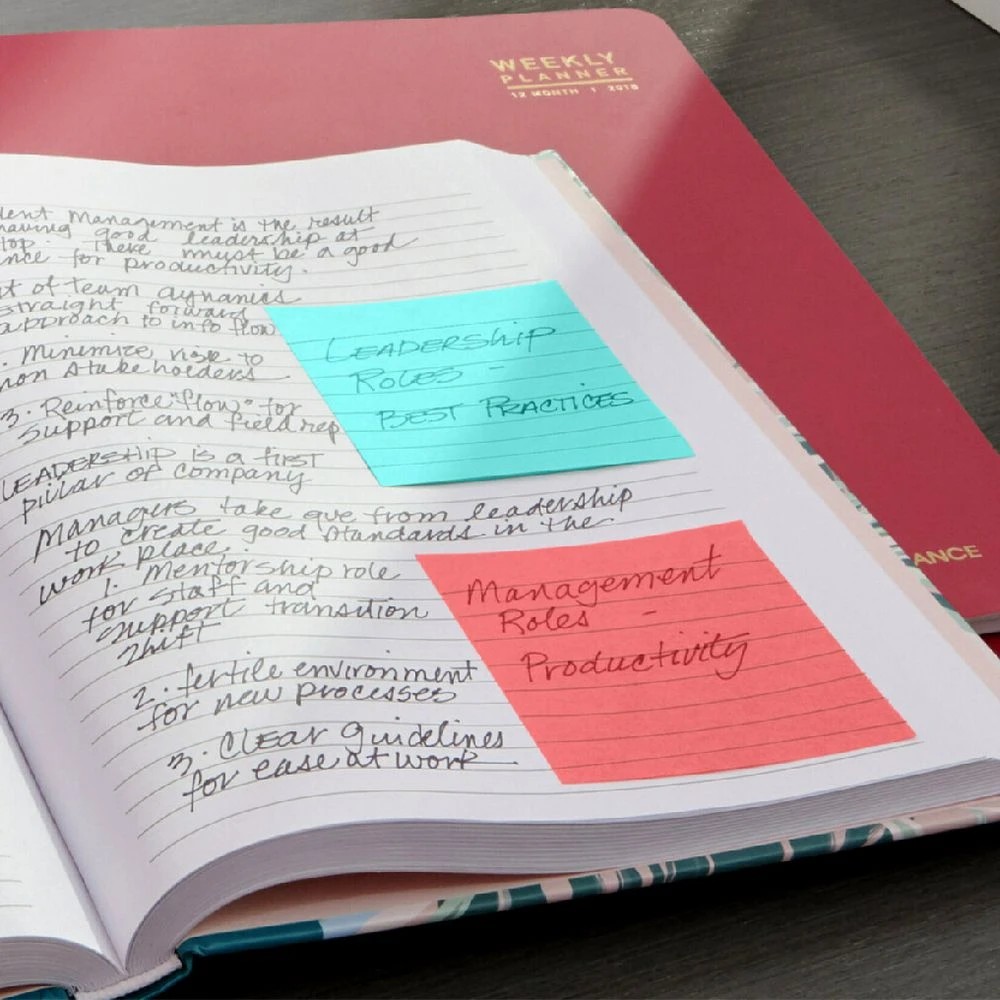 WEEKLY
PLANNER
12 MONTH 2018
dent Management is the result
having good leadership at
top. There must be a good
nce for productivity.
t of team dynamics
straight forward
approach to info flow
. Minimize risk to
non stakeholders
3. Reinforce "flow" for
support and field rep
LEADERSHIP is a first
pillar of company
Managers take que from leadership
to create good standards in the
work place.
1. Mentorship role
for staff and
support transition
shift
2. fertile environment
for new processes
3. Clear guidelines
for ease at work
LEADERSHIP
ROLES -
BEST PRACTICES
Management
Roles -
Productivity
ANCE